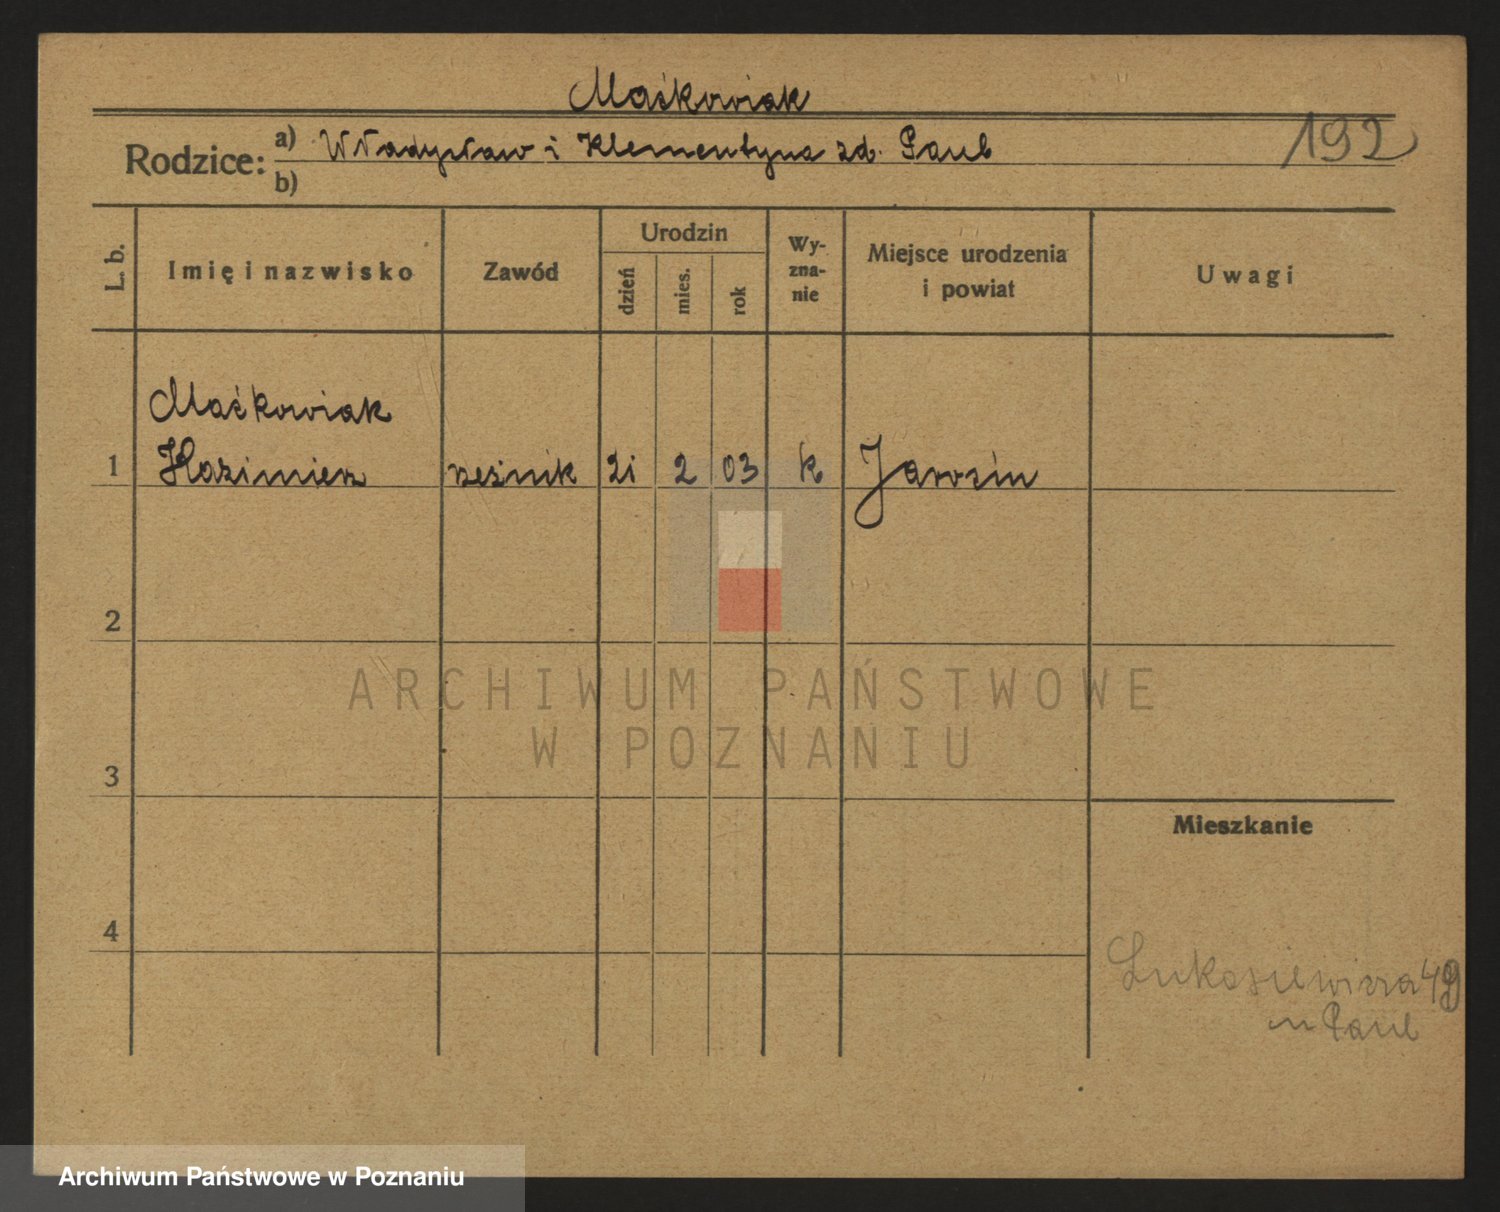 Maćkowiak
Rodzice: a) Władysław i Klementyna zd. Paul
b)
192
L. b.
Imię i nazwisko
Zawód
Urodzin
dzień
mies.
rok
Wy-
zna-
nie
Miejsce urodzenia
i powiat
Uwagi
Maćkowiak
1 Kazimierz rzeźnik 21 2 03 k Jarocin
2
ARCHIWUM PAŃSTWOWE
W POZNANIU
3
Mieszkanie
4
Łukasiewicza 49
u Paul
Archiwum Państwowe w Poznaniu